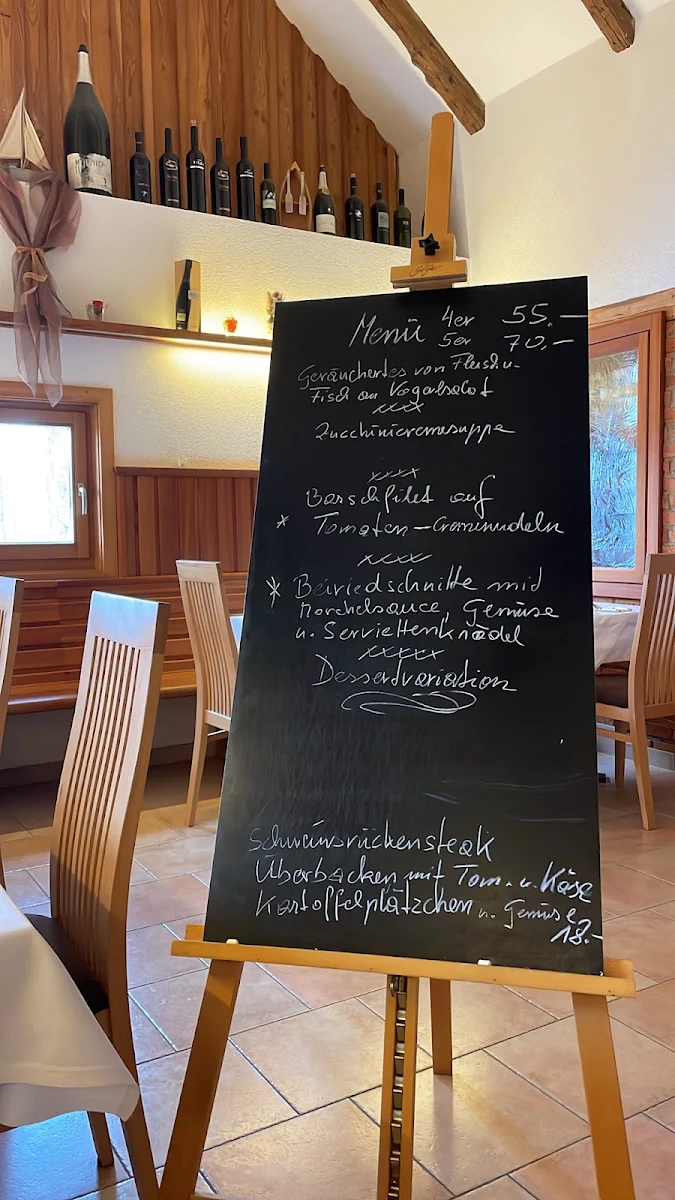 Menü 4er 55.-
5er 70.-
Geräuchertes von Fleisch u.
Fisch an Vogalsalat
xxxx
Zucchinicremesuppe
xxxx
Barschfilet auf
* Tomaten-Cremenudeln
xxxx
* Beiriedschnitte mid
Morchelsauce, Gemüse
u. Serviettenknödel
xxxxx
Dessertvariation
Schweinsrückensteak
Überbacken mit Tom. u. Käse
Kartoffelplätzchen u. Gemüse
18.-